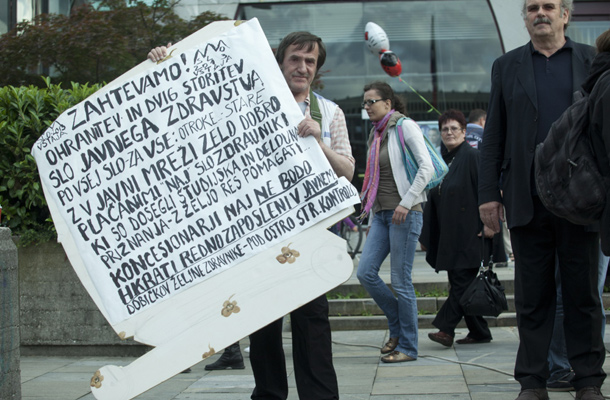 ZAHTEVAMO!
OHRANITEV IN DVIG STORITEV
SLO JAVNEGA ZDRAVSTVA
PO VSEJ SLO ZA VSE: OTROKE, STARE
Z V JAVNI MREŽI ZELO DOBRO
PLAČANIMI "NAJ" SLO ZDRAVNIKI
KI SO DOSEGLI ŠTUDIJSKA IN DELOVNA
PRIZNANJA Z ŽELJO RES POMAGATI.
KONCESIONARJI NAJ NE BODO
HKRATI REDNO ZAPOSLENI V JAVNEM
DOBIČKOV ŽELJNE ZDRAVNIKE - POD OSTRO STR. KONTROL